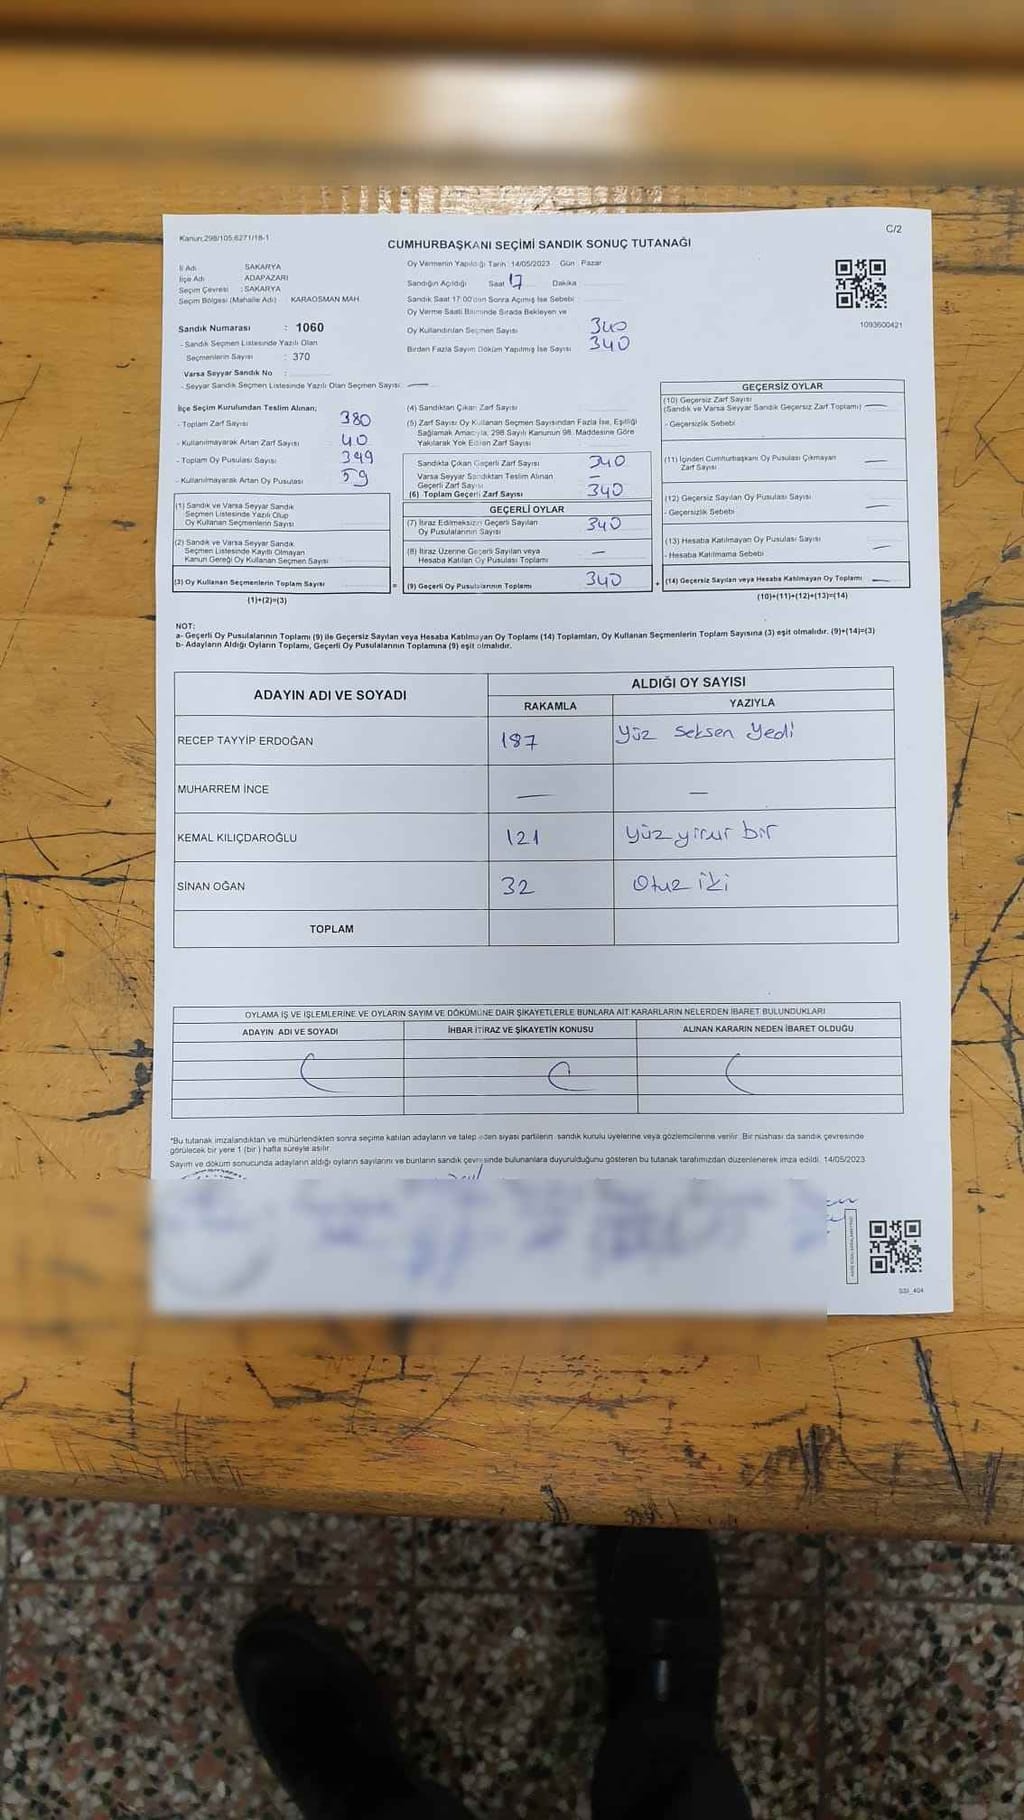 Kanun;298/105;6271/18-1
C/2
CUMHURBAŞKANI SEÇİMİ SANDIK SONUÇ TUTANAĞI
İl Adı : SAKARYA
İlçe Adı : ADAPAZARI
Seçim Çevresi : SAKARYA
Seçim Bölgesi (Mahalle Adı) : KARAOSMAN MAH.
Sandık Numarası : 1060
- Sandık Seçmen Listesinde Yazılı Olan
Seçmenlerin Sayısı : 370
Varsa Seyyar Sandık No :
- Seyyar Sandık Seçmen Listesinde Yazılı Olan Seçmen Sayısı: —
Oy Vermenin Yapıldığı Tarih :14/05/2023 Gün : Pazar
Sandığın Açıldığı Saat 17 Dakika
Sandık Saat 17:00'dan Sonra Açımış İse Sebebi :
Oy Verme Saati Bitiminde Sırada Bekleyen ve
Oy Kullandırılan Seçmen Sayısı 340
Birden Fazla Sayım Döküm Yapılmış İse Sayısı 340
1093600421
İlçe Seçim Kurulundan Teslim Alınan;
- Toplam Zarf Sayısı 380
- Kullanılmayarak Artan Zarf Sayısı 40
- Toplam Oy Pusulası Sayısı 399
- Kullanılmayarak Artan Oy Pusulası 59
(1) Sandık ve Varsa Seyyar Sandık
Seçmen Listesinde Yazılı Olup
Oy Kullanan Seçmenlerin Sayısı
(2) Sandık ve Varsa Seyyar Sandık
Seçmen Listesinde Kayıtlı Olmayan
Kanun Gereği Oy Kullanan Seçmen Sayısı
(3) Oy Kullanan Seçmenlerin Toplam Sayısı
(1)+(2)=(3)
=
(4) Sandıktan Çıkan Zarf Sayısı
(5) Zarf Sayısı Oy Kullanan Seçmen Sayısından Fazla İse, Eşitliği
Sağlamak Amacıyla, 298 Sayılı Kanunun 98. Maddesine Göre
Yakılarak Yok Edilen Zarf Sayısı
Sandıkta Çıkan Geçerli Zarf Sayısı 340
Varsa Seyyar Sandıktan Teslim Alınan
Geçerli Zarf Sayısı —
(6) Toplam Geçerli Zarf Sayısı 340
GEÇERLİ OYLAR
(7) İtiraz Edilmeksizin Geçerli Sayılan
Oy Pusulalarının Sayısı 340
(8) İtiraz Üzerine Geçerli Sayılan veya
Hesaba Katılan Oy Pusulası Toplamı —
(9) Geçerli Oy Pusulalarının Toplamı 340
+
GEÇERSİZ OYLAR
(10) Geçersiz Zarf Sayısı
(Sandık ve Varsa Seyyar Sandık Geçersiz Zarf Toplamı) —
- Geçersizlik Sebebi
(11) İçinden Cumhurbaşkanı Oy Pusulası Çıkmayan
Zarf Sayısı —
(12) Geçersiz Sayılan Oy Pusulası Sayısı
- Geçersizlik Sebebi —
(13) Hesaba Katılmayan Oy Pusulası Sayısı
- Hesaba Katılmama Sebebi —
(14) Geçersiz Sayılan veya Hesaba Katılmayan Oy Toplamı —
(10)+(11)+(12)+(13)=(14)
NOT:
a- Geçerli Oy Pusulalarının Toplamı (9) ile Geçersiz Sayılan veya Hesaba Katılmayan Oy Toplamı (14) Toplamları, Oy Kullanan Seçmenlerin Toplam Sayısına (3) eşit olmalıdır. (9)+(14)=(3)
b- Adayların Aldığı Oyların Toplamı, Geçerli Oy Pusulalarının Toplamına (9) eşit olmalıdır.
ADAYIN ADI VE SOYADI
ALDIĞI OY SAYISI
RAKAMLA YAZIYLA
RECEP TAYYİP ERDOĞAN 187 Yüz seksen Yedi
MUHARREM İNCE — —
KEMAL KILIÇDAROĞLU 121 yüz yirmi bir
SİNAN OĞAN 32 Otuz iki
TOPLAM
OYLAMA İŞ VE İŞLEMLERİNE VE OYLARIN SAYIM VE DÖKÜMÜNE DAİR ŞİKAYETLERLE BUNLARA AİT KARARLARIN NELERDEN İBARET BULUNDUKLARI
ADAYIN ADI VE SOYADI İHBAR İTİRAZ VE ŞİKAYETİN KONUSU ALINAN KARARIN NEDEN İBARET OLDUĞU
*Bu tutanak imzalandıktan ve mühürlendikten sonra seçime katılan adayların ve talep eden siyasi partilerin sandık kurulu üyelerine veya gözlemcilerine verilir. Bir nüshası da sandık çevresinde
görülecek bir yere 1 (bir) hafta süreyle asılır.
Sayım ve döküm sonucunda adayların aldığı oyların sayılarını ve bunların sandık çevresinde bulunanlara duyurulduğunu gösteren bu tutanak tarafımızdan düzenlenerek imza edildi. 14/05/2023
SSI_404